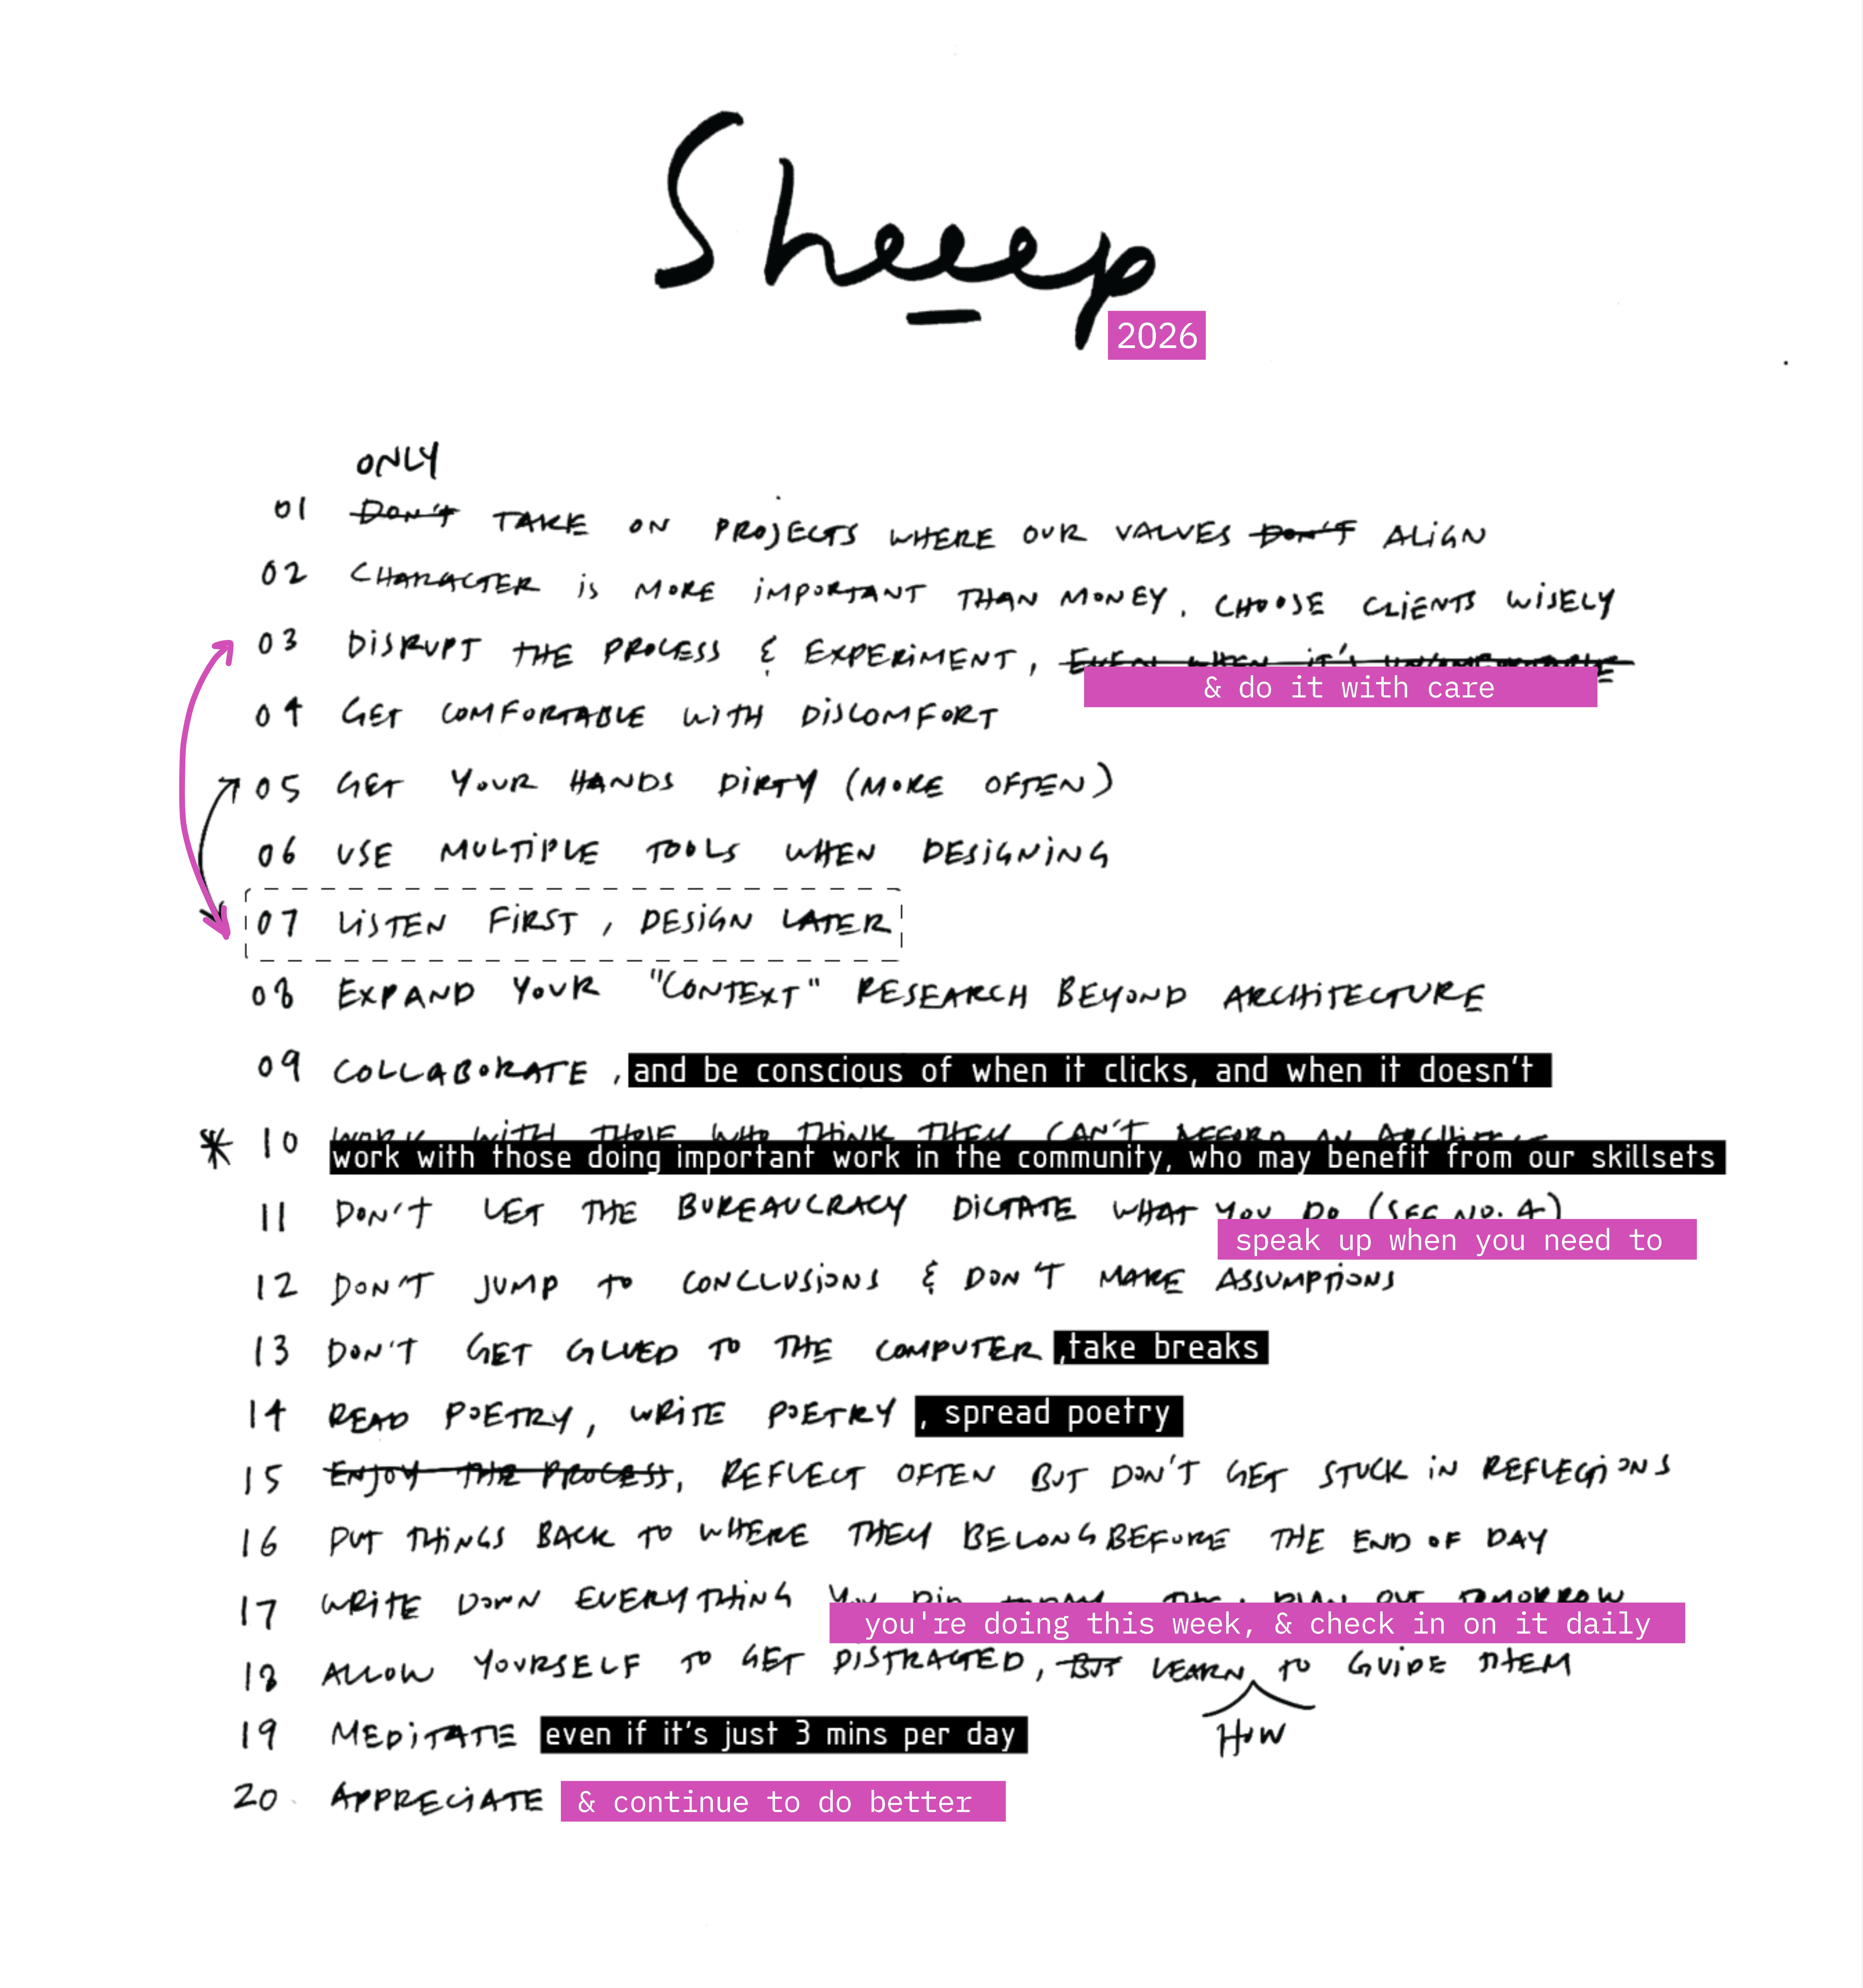 Sheeep
2026
ONLY
01 DON'T TAKE ON PROJECTS WHERE OUR VALUES DON'T ALIGN
02 CHARACTER IS MORE IMPORTANT THAN MONEY. CHOOSE CLIENTS WISELY
03 DISRUPT THE PROCESS & EXPERIMENT, EVEN WHEN IT'S
& do it with care
04 GET COMFORTABLE WITH DISCOMFORT
05 GET YOUR HANDS DIRTY (MORE OFTEN)
06 USE MULTIPLE TOOLS WHEN DESIGNING
07 LISTEN FIRST, DESIGN LATER
08 EXPAND YOUR "CONTEXT" RESEARCH BEYOND ARCHITECTURE
09 COLLABORATE, and be conscious of when it clicks, and when it doesn't
* 10 WORK WITH THOSE WHO THINK THEY CAN'T AFFORD AN ARCHITECT
work with those doing important work in the community, who may benefit from our skillsets
11 DON'T LET THE BUREAUCRACY DICTATE WHAT YOU DO (SEE NO. 4)
speak up when you need to
12 DON'T JUMP TO CONCLUSIONS & DON'T MAKE ASSUMPTIONS
13 DON'T GET GLUED TO THE COMPUTER ,take breaks
14 READ POETRY, WRITE POETRY , spread poetry
15 ENJOY THE PROCESS, REFLECT OFTEN BUT DON'T GET STUCK IN REFLECTIONS
16 PUT THINGS BACK TO WHERE THEY BELONG BEFORE THE END OF DAY
17 WRITE DOWN EVERYTHING YOU DID TODAY, PLAN OUT TOMORROW
you're doing this week, & check in on it daily
18 ALLOW YOURSELF TO GET DISTRACTED, BUT LEARN TO GUIDE THEM
HOW
19 MEDITATE even if it's just 3 mins per day
20 APPRECIATE & continue to do better